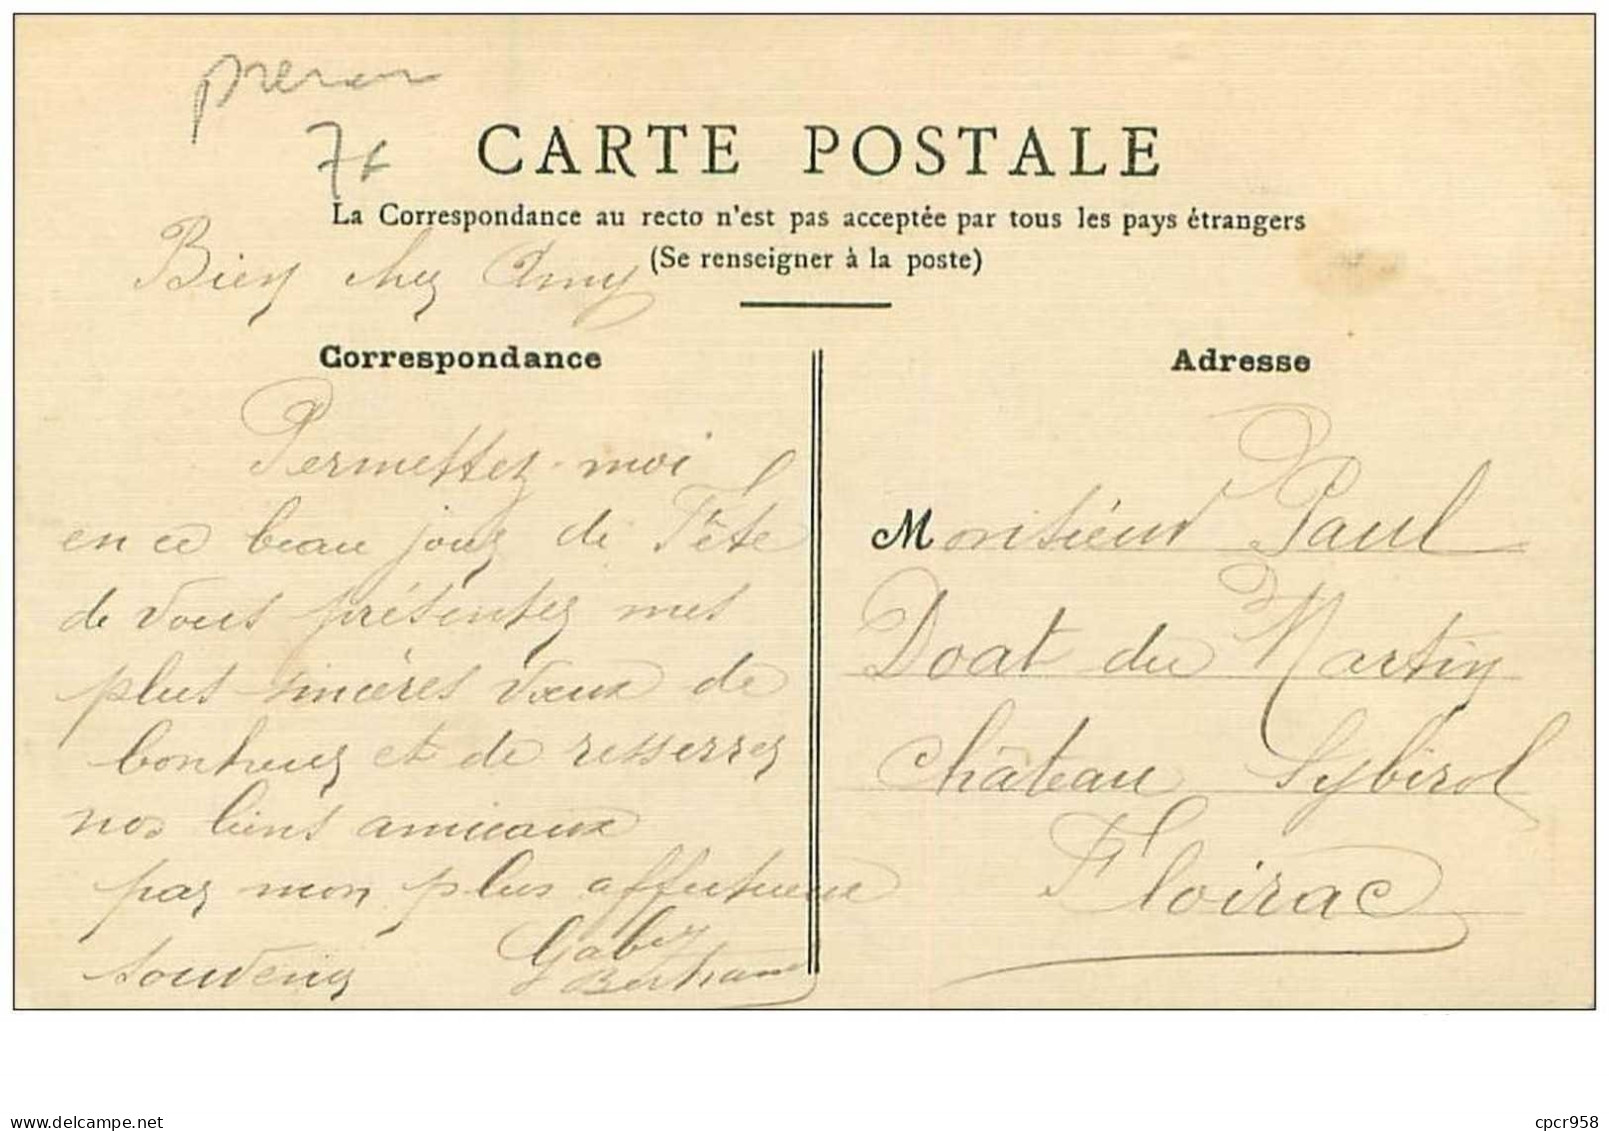 prenom
7f
CARTE POSTALE
La Correspondance au recto n'est pas acceptée par tous les pays étrangers
(Se renseigner à la poste)
Bien cher Amy
Correspondance
Permettez-moi
en ce beau jour de Fête
de vous présenter mes
plus sincères vœux de
bonheur et de resserrer
nos liens amicaux
par mon plus affectueux
souvenir
Gaby
Bertrand
Adresse
Monsieur Paul
Doat du Martin
Château Sybirol
Floirac
delcampe.net
cpcr958